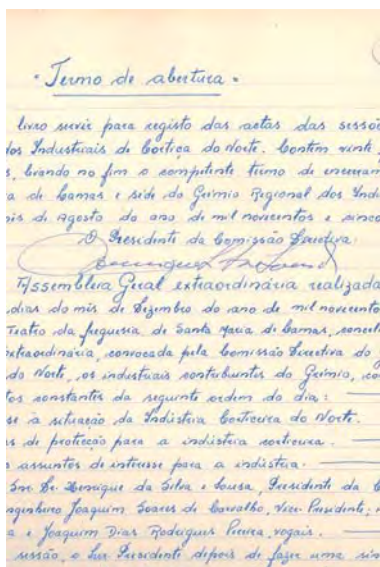 "Termo de abertura"
livro servir para registo das actas das sessõ
dos Industriais de Cortiça do Norte. Contém vinte
s, levando no fim o competente termo de encerram
a de Lamas e séde do Grémio Regional dos Indu
mês de Agosto do ano de mil novecentos e cinco
O Presidente da Comissão Executiva:
Assembleia Geral extraordinária realizada
dias do mês de Dezembro do ano de mil novecento
Teatro da freguesia de Santa Maria de Lamas,
extraordinária, convocada pela Comissão Directiva do
do Norte, os industriais contribuintes do Grémio, co
tos constantes da seguinte ordem do dia:
se à situação da Indústria Corticeira do Norte.
s de protecção para a indústria corticeira.
s assuntos de interesse para a indústria.
Snr. Dr. Henrique da Silva e Sousa, Presidente da C
ngenheiro Joaquim Soares de Carvalho, Vice-Presidente;
a e Joaquim Dias Rodrigues Pereira, vogais.
sessão, o Snr. Presidente depois de fazer uma sin